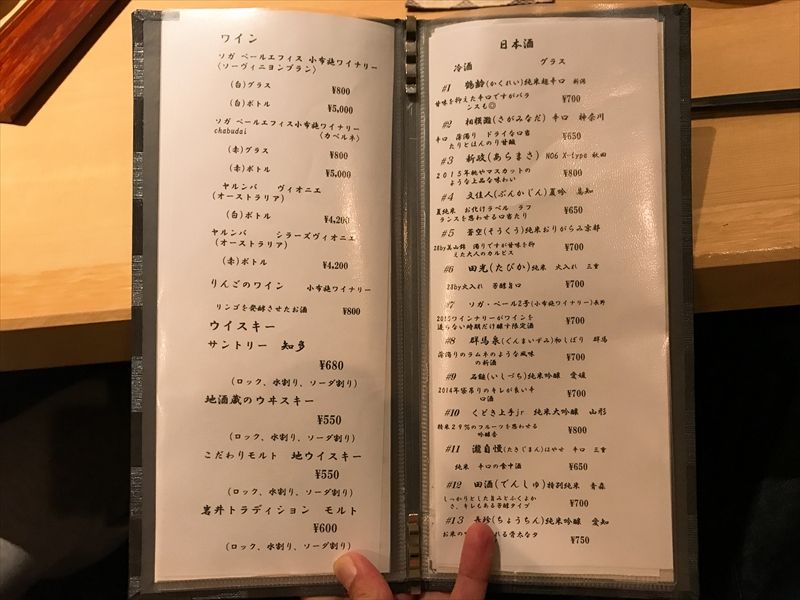 ワイン
ソガ ペールエフィス 小布施ワイナリー
(ソーヴィニヨンブラン)
(白)グラス ¥800
(白)ボトル ¥5,000
ソガ ペールエフィス小布施ワイナリー
chabudai (カベルネ)
(赤)グラス ¥800
(赤)ボトル ¥5,000
ヤルンバ ヴィオニエ
(オーストラリア)
(白)ボトル ¥4,200
ヤルンバ シラーズヴィオニエ
(オーストラリア)
(赤)ボトル ¥4,200
りんごのワイン 小布施ワイナリー
リンゴを発酵させたお酒 ¥800
ウイスキー
サントリー 知多
¥680
(ロック、水割り、ソーダ割り)
地酒蔵のウヰスキー
¥550
(ロック、水割り、ソーダ割り)
こだわりモルト 地ウイスキー
¥550
(ロック、水割り、ソーダ割り)
岩井トラディション モルト
¥600
(ロック、水割り、ソーダ割り)
日本酒
冷酒 グラス
#1 鶴齢(かくれい)純米超辛口 新潟
甘味を抑えた辛口ですがバラ
ンスも◎ ¥700
#2 相模灘(さがみなだ) 辛口 神奈川
辛口 薄濁り ドライな口当
たりとほんのり甘酸 ¥650
#3 新政(あらまさ) NO6 X-type 秋田
2015年桃やマスカットの
ような上品な味わい ¥800
#4 文佳人(ぶんかじん)夏吟 高知
夏純米 お化けラベル ラフ
ランスを思わせる口当たり ¥650
#5 蒼空(そうくう)純米おりがらみ京都
28by美山錦 濁りですが甘味を抑
えた大人のカルピス ¥700
#6 田光(たびか)純米 火入れ 三重
28by火入れ 芳醇旨口 ¥700
#7 ソガ・ペール2号(小布施ワイナリー)長野
2015ワインナリーがワインを
造らない時期だけ醸す限定酒 ¥700
#8 群馬泉(ぐんまいずみ)初しぼり 群馬
薄濁りのラムネのような風味
の新酒 ¥700
#9 石鎚(いしづち)純米吟醸 愛媛
2014年袋吊りのキレが良い辛
口酒 ¥700
#10 くどき上手jr 純米大吟醸 山形
精米29%のフルーツを思わせる
吟醸香 ¥800
#11 瀧自慢(たきじまん)はやせ 辛口 三重
純米 辛口の食中酒 ¥650
#12 田酒(でんしゅ)特別純米 青森
しっかりとした旨みとふくよか
さ、キレもある芳醇タイプ ¥700
#13 長珍(ちょうちん)純米吟醸 愛知
お米の れる骨太なタ ¥750